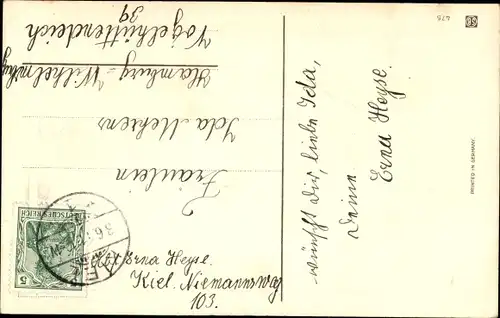 wünscht Dir, liebe Ida,
Deine
Erna Heyse.
Fräulein
Ida Mehrens
Hamburg-Wilhelmsburg
Vogelhüttendeich
39
Erna Heyse.
Kiel. Niemannsweg
103.
DEUTSCHES REICH
5
PRINTED IN GERMANY.